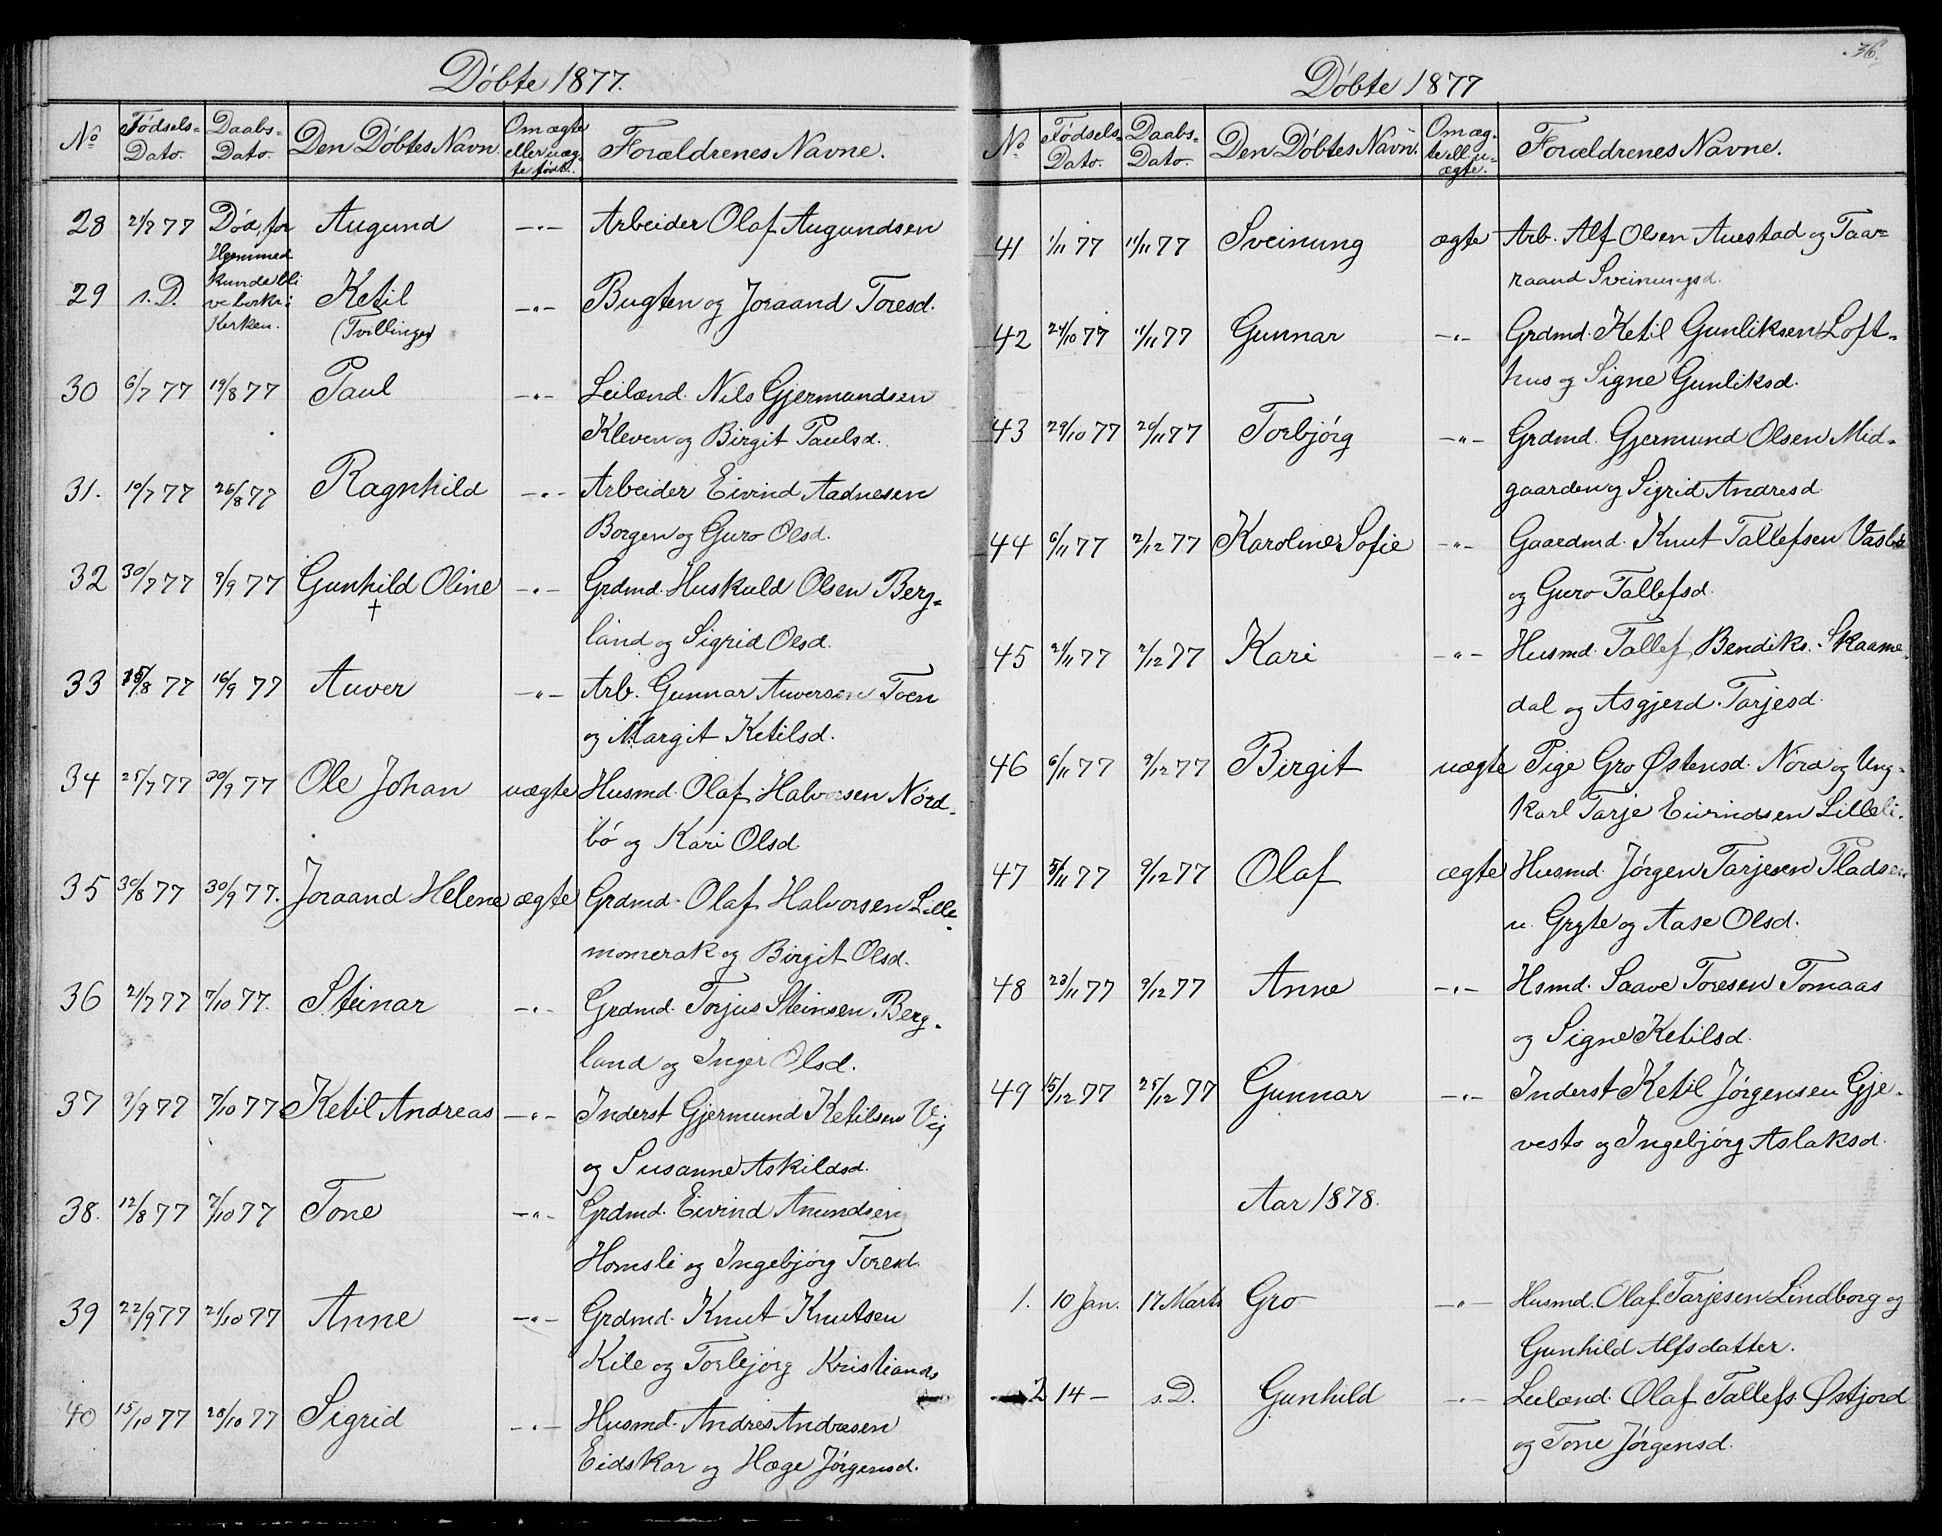 Døbte 1877.
No Fødsels= Dato. Daabs= Dato. Den Døbtes Navn Om ægte eller uæg= te født. Forældrenes Navne.
28 21/7 77 Døde, før Augund —"— Arbeider Olaf Augundsen
Hjemmed
29 s. D. kunde bli Ketil —"— Bugten og Joraand Toresd.
ve bekr. i
Kirken. (Tvillinger)
30 6/7 77 19/8 77 Paul —"— Leilænd. Nils Gjermundsen
Kleven og Birgit Paulsd.
31. 10/7 77 26/8 77 Ragnhild —"— Arbeider Eivind Aadnesen
Borgen og Guro Olsd.
32 30/7 77 9/9 77 Gunhild Oline —"— Grdmd. Huskuld Olsen Berg=
† land og Sigrid Olsd.
33 15/8 77 16/9 77 Auver —"— Arb. Gunnar Auversen Toen
og Margit Ketilsd.
34 25/7 77 30/9 77 Ole Johan uægte Husmd. Olaf Halvorsen Nord=
bø og Kari Olsd.
35 30/8 77 30/9 77. Joraand Helene ægte Grdmd. Olaf Halvorsen Lille
momerak og Birgit Olsd.
36 21/7 77 7/10 77. Steinar —"— Grdmd. Torjus Steinsen Berg=
land og Inger Olsd.
37 2/9 77 7/10 77 Ketil Andreas —"— Inderst Gjermund Ketilsen Vig
og Susanne Askildsd.
38. 12/8 77 7/10 77 Tone —"— Grdmd. Eivind Anundsen
Homsli og Ingebjørg Toresd.
39 22/9 77 21/10 77 Anne —"— Grdmd. Knut Knutsen
Kile og Torbjørg Kristiands
40 15/10 77 28/10 77 Sigrid —"— Husmd. Andres Andresen
Eidskar og Hæge Jørgensd.
36.
Døbte 1877
No Fødsels= Dato. Daabs= Dato. Den Døbtes Navn. Om æg= te ell u= ægte. Forældrenes Navne.
41 1/11 77 11/11 77 Sveinung ægte Arb. Alf Olsen Austad og Taar=
raand Sveinungsd.
42 24/10 77 11/11 77 Gunnar —"— Grdmd. Ketil Gunliksen Loft=
hus og Signe Gunliksd.
43 29/10 77 20/11 77 Torbjørg —"— Grdmd. Gjermund Olsen Mid=
gaarden og Sigrid Andresd
44 6/11 77 2/12 77 Karoline Sofie —"— Gaardmd. Knut Tallefsen Vasbø
og Guro Tallefsd.
45 21/11 77 2/12 77 Kari —"— Husmd. Tallef Bendiks. Skaame=
dal og Asgjerd Tarjesd.
46 6/11 77 9/12 77 Birgit uægte Pige Gro Østensd. Nord og Ung=
karl Tarje Eivindsen Lilleli.
47 5/11 77 9/12 77 Olaf ægte Husmd. Jørgen Tarjesen Pladsen
u. Gryte og Aase Olsd.
48 23/11 77 9/12 77 Anne —"— Hsmd. Saave Toresen Tomaas
og Signe Ketilsd.
49 15/12 77 25/12 77 Gunnar —"— Inderst Ketil Jørgensen Gje=
vesto og Ingebjørg Aslaksd.
Aar 1878.
1. 10 Jan. 17 Marts Gro —"— Husmd. Olaf Tarjesen Lindborg og
Gunhild Alfsdatter.
2 14 — s. D. Gunhild —"— Leilænd. Olaf Tallefs. Østjord
og Tone Jørgensd.